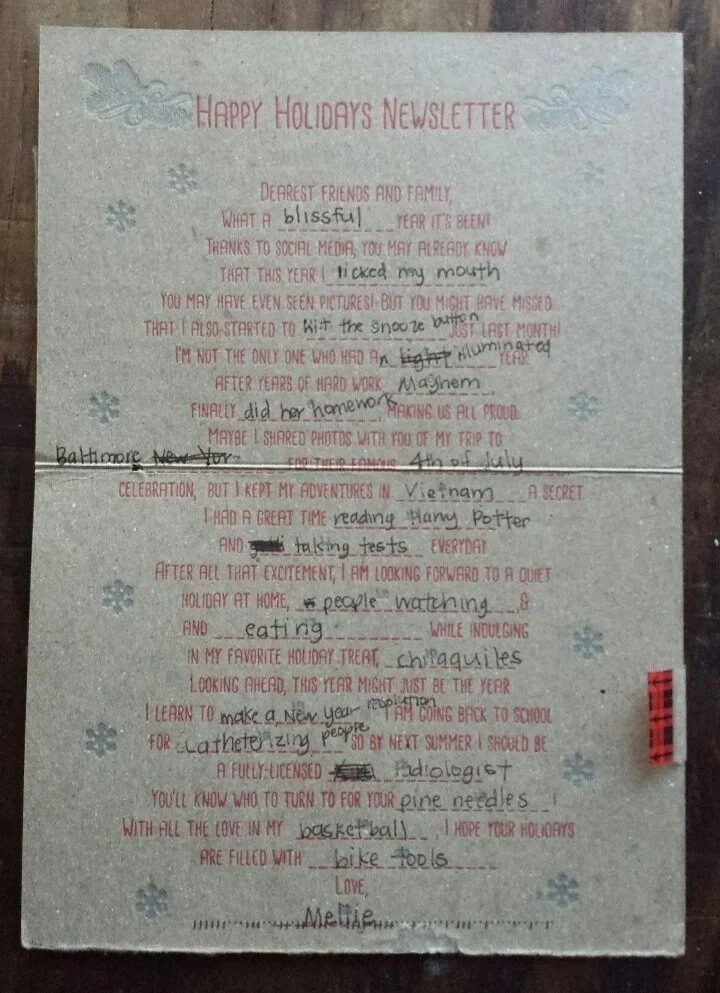 HAPPY HOLIDAYS NEWSLETTER
DEAREST FRIENDS AND FAMILY,
WHAT A blissful YEAR IT'S BEEN!
THANKS TO SOCIAL MEDIA, YOU MAY ALREADY KNOW
THAT THIS YEAR I licked my mouth
YOU MAY HAVE EVEN SEEN PICTURES! BUT YOU MIGHT HAVE MISSED
THAT I ALSO STARTED TO hit the snooze button JUST LAST MONTH!
I'M NOT THE ONLY ONE WHO HAD An light illuminated YEAR
AFTER YEARS OF HARD WORK, Mayhem
FINALLY did her homework, MAKING US ALL PROUD.
MAYBE I SHARED PHOTOS WITH YOU OF MY TRIP TO
Baltimore New Yor FOR THEIR FAMOUS 4th of July
CELEBRATION, BUT I KEPT MY ADVENTURES IN Vietnam A SECRET
I HAD A GREAT TIME reading Harry Potter
AND taking tests EVERYDAY
AFTER ALL THAT EXCITEMENT, I AM LOOKING FORWARD TO A QUIET
HOLIDAY AT HOME, people watching &
AND eating WHILE INDULGING
IN MY FAVORITE HOLIDAY TREAT, chilaquiles
LOOKING AHEAD, THIS YEAR MIGHT JUST BE THE YEAR
I LEARN TO make a New year resolution I AM GOING BACK TO SCHOOL
FOR catheterizing people SO BY NEXT SUMMER I SHOULD BE
A FULLY-LICENSED radiologist
YOU'LL KNOW WHO TO TURN TO FOR YOUR pine needles !
WITH ALL THE LOVE IN MY basketball, I HOPE YOUR HOLIDAYS
ARE FILLED WITH bike tools
LOVE,
Mellie